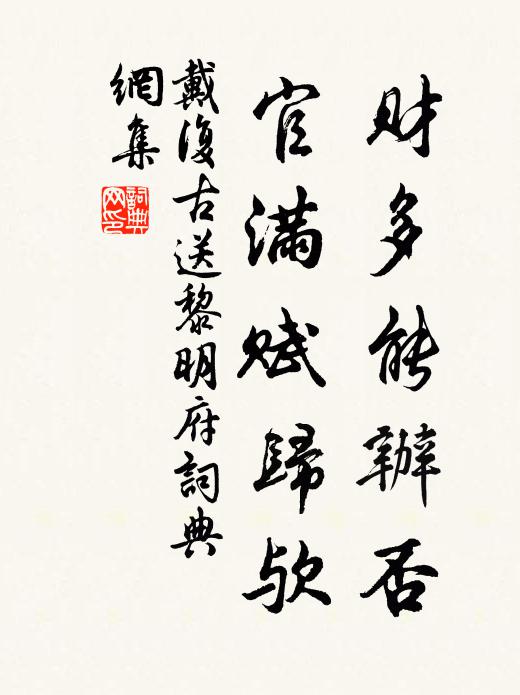 财多能辦否
官滿赋歸欤
戴復古送黎明府詞典
網集
詞典
网印